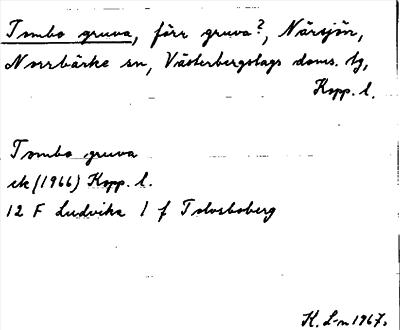 Tombo gruva, förr gruva?, Närsjön,
Norrbärke sn, Västerbergslags doms. tg,
Kopp. l.
Tombo gruva
ek (1966) Kopp. l.
12 F Ludvika 1 f
K. L-n 1967.